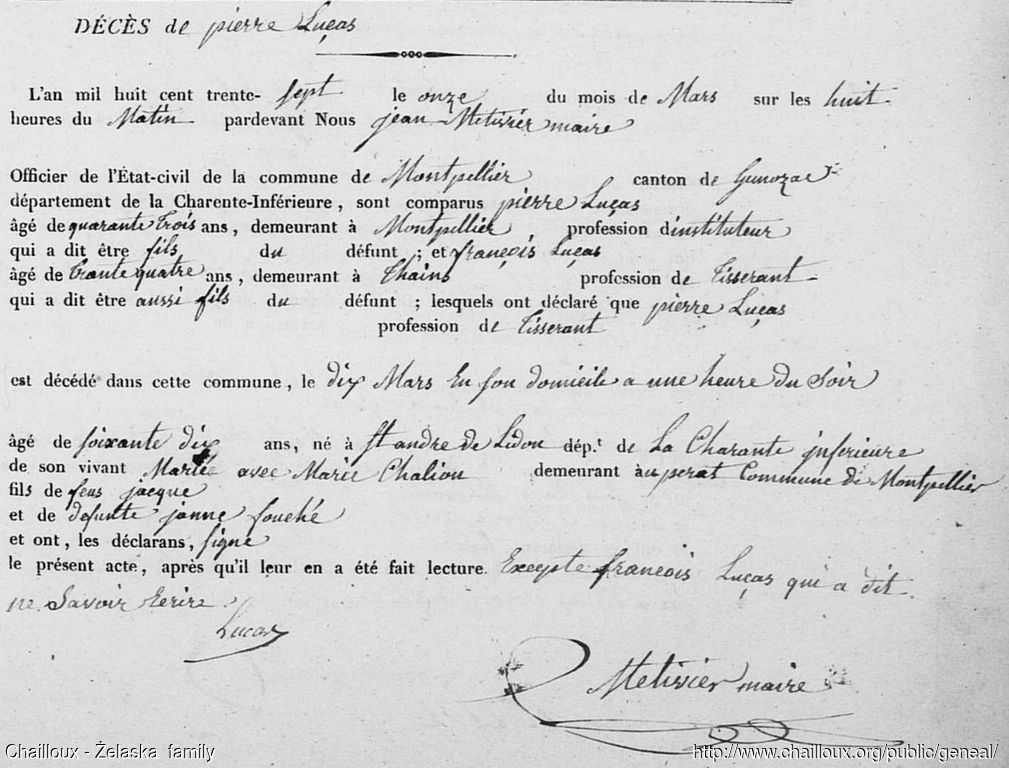 DÉCÈS de pierre Luças
L'an mil huit cent trente- sept le onze du mois de Mars sur les huit
heures du Matin pardevant Nous jean Metivier maire
Officier de l'État-civil de la commune de Montpellier canton de Gemozac
département de la Charente-Inférieure, sont comparus pierre Luças
âgé de quarante trois ans, demeurant à Montpellier, profession d'instituteur
qui a dit être fils du défunt; et françois Luças
âgé de trante quatre ans, demeurant à Thains profession de Tisserant
qui a dit être aussi fils du défunt; lesquels ont déclaré que pierre Luças
profession de Tisserant
est décédé dans cette commune, le dix Mars En son domicile a une heure du Soir
âgé de soixante dix ans, né à St andre de Lidon dép.t de La Charante inferieure
de son vivant Marié avec Marie Chaliou demeurant à au perat Commune de Montpellier
fils de feus jacque
et de defunte janne fouché
et ont, les déclarans, signé
le présent acte, après qu'il leur en a été fait lecture. Exepte francois Luças qui a dit
ne Savoir Ecrire.
Lucas
Metivier maire
Chailloux - Želaska family
http://www.chailloux.org/public/geneal/